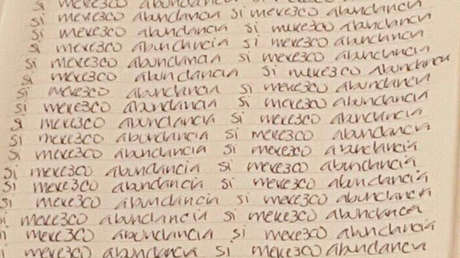 si mere3co abundancia si mere3co abundancia
si mere3co abundancia si mere3co abundancia
si mere3co abundancia si mere3co abundancia
si mere3co abundancia si mere3co abundancia
si mere3co abundancia si mere3co abundancia
si mere3co abundancia si mere3co abundancia
si mere3co abundancia si mere3co abundancia
si mere3co abundancia si mere3co abundancia
si mere3co abundancia si mere3co abundancia
si mere3co abundancia si mere3co abundancia
si mere3co abundancia si mere3co abundancia
si mere3co abundancia si mere3co abundancia
si mere3co abundancia si mere3co abundancia
si mere3co abundancia si mere3co abundancia
mere3co abundancia si mere3co abundancia
mere3co abundancia si mere3co abundancia
mere3co abundancia si mere3co abundancia